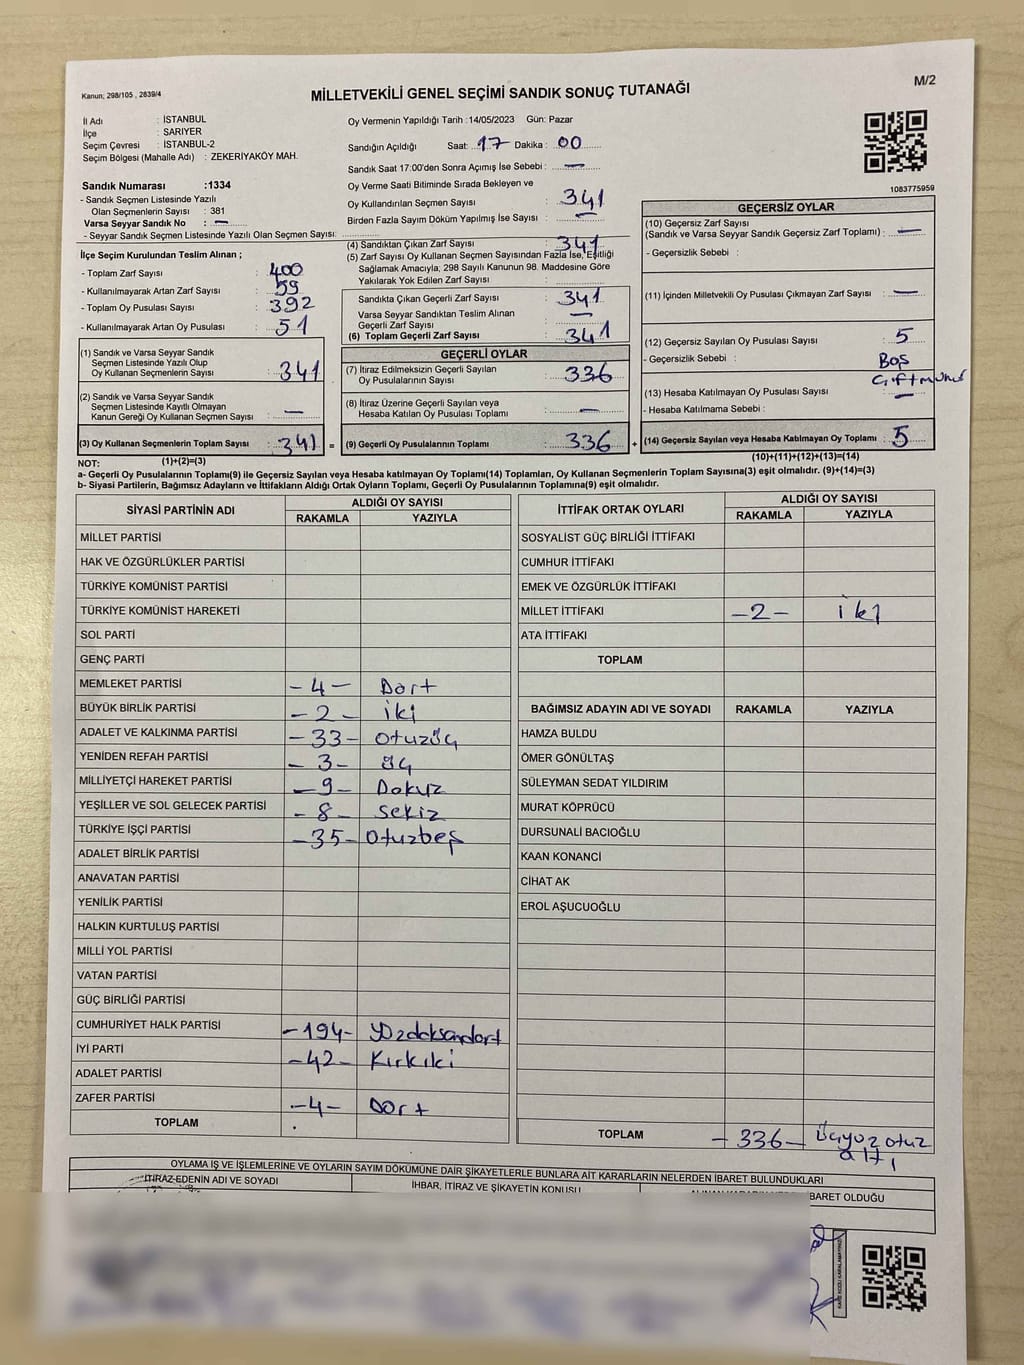 Kanun; 298/105 , 2839/4
MİLLETVEKİLİ GENEL SEÇİMİ SANDIK SONUÇ TUTANAĞI
M/2
İl Adı : İSTANBUL
İlçe : SARIYER
Seçim Çevresi : İSTANBUL-2
Seçim Bölgesi (Mahalle Adı) : ZEKERİYAKÖY MAH.
Sandık Numarası :1334
- Sandık Seçmen Listesinde Yazılı
Olan Seçmenlerin Sayısı : 381
Varsa Seyyar Sandık No : —
- Seyyar Sandık Seçmen Listesinde Yazılı Olan Seçmen Sayısı:
Oy Vermenin Yapıldığı Tarih :14/05/2023 Gün: Pazar
Sandığın Açıldığı Saat: 17 Dakika : 00
Sandık Saat 17:00'den Sonra Açımış İse Sebebi : —
Oy Verme Saati Bitiminde Sırada Bekleyen ve
Oy Kullandırılan Seçmen Sayısı : 341
Birden Fazla Sayım Döküm Yapılmış İse Sayısı : —
1083775959
İlçe Seçim Kurulundan Teslim Alınan ;
- Toplam Zarf Sayısı : 400
- Kullanılmayarak Artan Zarf Sayısı : 59
- Toplam Oy Pusulası Sayısı : 392
- Kullanılmayarak Artan Oy Pusulası : 51
(1) Sandık ve Varsa Seyyar Sandık
Seçmen Listesinde Yazılı Olup
Oy Kullanan Seçmenlerin Sayısı : 341
(2) Sandık ve Varsa Seyyar Sandık
Seçmen Listesinde Kayıtlı Olmayan
Kanun Gereği Oy Kullanan Seçmen Sayısı : —
(3) Oy Kullanan Seçmenlerin Toplam Sayısı : 341 =
(1)+(2)=(3)
(4) Sandıktan Çıkan Zarf Sayısı : 341
(5) Zarf Sayısı Oy Kullanan Seçmen Sayısından Fazla İse, Eşitliği
Sağlamak Amacıyla; 298 Sayılı Kanunun 98. Maddesine Göre
Yakılarak Yok Edilen Zarf Sayısı :
Sandıkta Çıkan Geçerli Zarf Sayısı : 341
Varsa Seyyar Sandıktan Teslim Alınan
Geçerli Zarf Sayısı : —
(6) Toplam Geçerli Zarf Sayısı : 341
GEÇERLİ OYLAR
(7) İtiraz Edilmeksizin Geçerli Sayılan
Oy Pusulalarının Sayısı : 336
(8) İtiraz Üzerine Geçerli Sayılan veya
Hesaba Katılan Oy Pusulası Toplamı : —
(9) Geçerli Oy Pusulalarının Toplamı : 336 +
GEÇERSİZ OYLAR
(10) Geçersiz Zarf Sayısı
(Sandık ve Varsa Seyyar Sandık Geçersiz Zarf Toplamı) : —
- Geçersizlik Sebebi :
(11) İçinden Milletvekili Oy Pusulası Çıkmayan Zarf Sayısı : —
(12) Geçersiz Sayılan Oy Pusulası Sayısı : 5
- Geçersizlik Sebebi : Boş
Çift mühür
(13) Hesaba Katılmayan Oy Pusulası Sayısı : —
- Hesaba Katılmama Sebebi :
(14) Geçersiz Sayılan veya Hesaba Katılmayan Oy Toplamı : 5
(10)+(11)+(12)+(13)=(14)
NOT:
a- Geçerli Oy Pusulalarının Toplamı(9) ile Geçersiz Sayılan veya Hesaba katılmayan Oy Toplamı(14) Toplamları, Oy Kullanan Seçmenlerin Toplam Sayısına(3) eşit olmalıdır. (9)+(14)=(3)
b- Siyasi Partilerin, Bağımsız Adayların ve İttifakların Aldığı Ortak Oyların Toplamı, Geçerli Oy Pusulalarının Toplamına(9) eşit olmalıdır.
SİYASİ PARTİNİN ADI ALDIĞI OY SAYISI
RAKAMLA YAZIYLA
MİLLET PARTİSİ
HAK VE ÖZGÜRLÜKLER PARTİSİ
TÜRKİYE KOMÜNİST PARTİSİ
TÜRKİYE KOMÜNİST HAREKETİ
SOL PARTİ
GENÇ PARTİ
MEMLEKET PARTİSİ -4- Dört
BÜYÜK BİRLİK PARTİSİ -2- İki
ADALET VE KALKINMA PARTİSİ -33- Otuzüç
YENİDEN REFAH PARTİSİ -3- Üç
MİLLİYETÇİ HAREKET PARTİSİ -9- Dokuz
YEŞİLLER VE SOL GELECEK PARTİSİ -8- Sekiz
TÜRKİYE İŞÇİ PARTİSİ -35- Otuzbeş
ADALET BİRLİK PARTİSİ
ANAVATAN PARTİSİ
YENİLİK PARTİSİ
HALKIN KURTULUŞ PARTİSİ
MİLLİ YOL PARTİSİ
VATAN PARTİSİ
GÜÇ BİRLİĞİ PARTİSİ
CUMHURİYET HALK PARTİSİ -194- Yüzdoksandört
İYİ PARTİ -42- Kırkiki
ADALET PARTİSİ
ZAFER PARTİSİ -4- Dört
TOPLAM
İTTİFAK ORTAK OYLARI ALDIĞI OY SAYISI
RAKAMLA YAZIYLA
SOSYALİST GÜÇ BİRLİĞİ İTTİFAKI
CUMHUR İTTİFAKI
EMEK VE ÖZGÜRLÜK İTTİFAKI
MİLLET İTTİFAKI -2- iki
ATA İTTİFAKI
TOPLAM
BAĞIMSIZ ADAYIN ADI VE SOYADI RAKAMLA YAZIYLA
HAMZA BULDU
ÖMER GÖNÜLTAŞ
SÜLEYMAN SEDAT YILDIRIM
MURAT KÖPRÜCÜ
DURSUNALİ BACIOĞLU
KAAN KONANCİ
CİHAT AK
EROL AŞUCUOĞLU
TOPLAM -336- Üçyüz otuz
altı
OYLAMA İŞ VE İŞLEMLERİNE VE OYLARIN SAYIM DÖKÜMÜNE DAİR ŞİKAYETLERLE BUNLARA AİT KARARLARIN NELERDEN İBARET BULUNDUKLARI
İTİRAZ EDENİN ADI VE SOYADI İHBAR, İTİRAZ VE ŞİKAYETİN KONUSU İBARET OLDUĞU